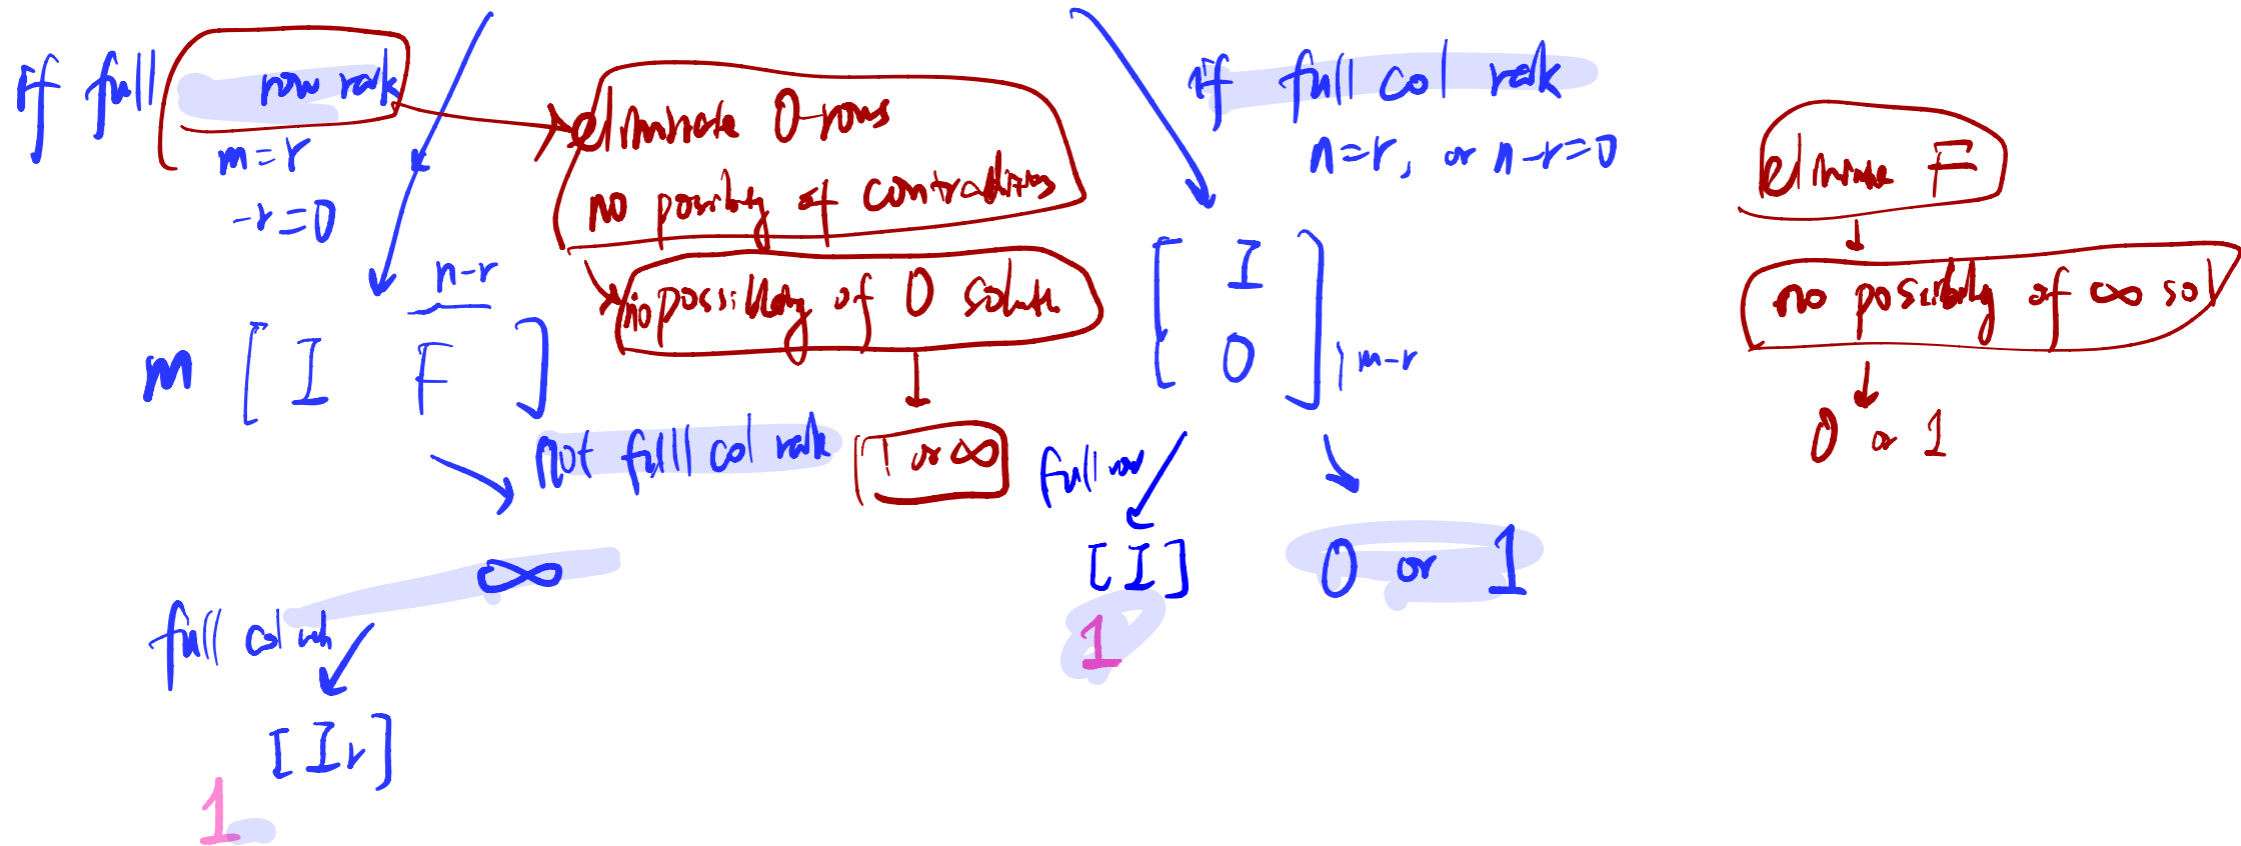 if full row rank
m=r
-r=0
eliminate 0-rows
no possibility of contradictions
no possibility of 0 solution
1 or ∞
n-r
m [ I F ]
not full col rank
∞
full col rank
[ Ir ]
1
if full col rank
n=r, or n-r=0
[ I
0 ] } m-r
full row
[ I ]
1
0 or 1
eliminate F
no possibility of ∞ sol
0 or 1